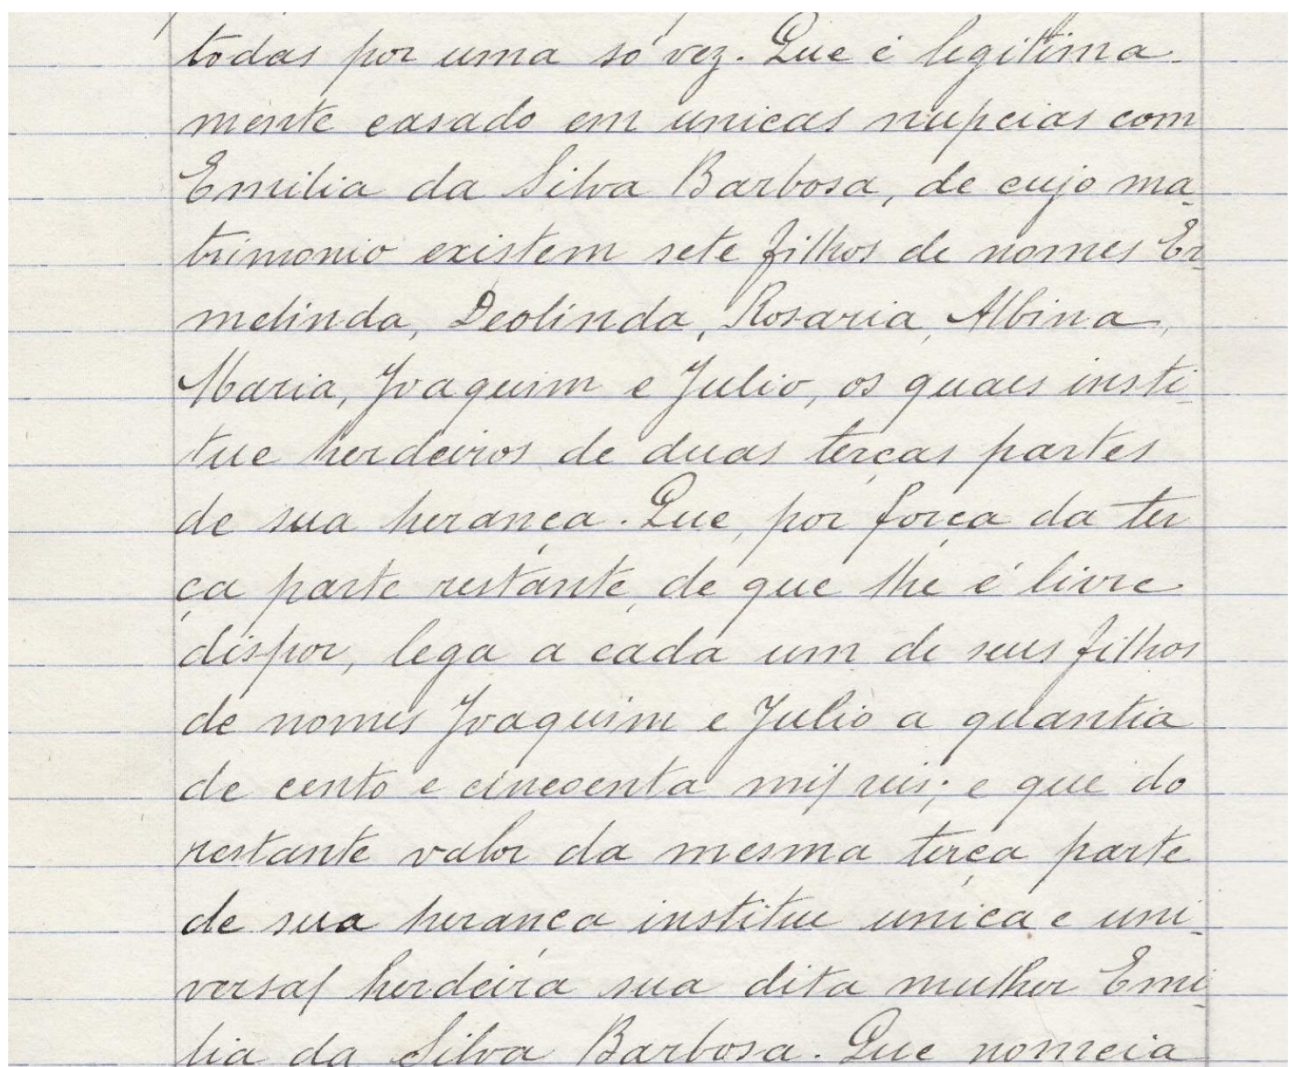 todas por uma só vez. Que é legitima-
mente casado em unicas nupcias com
Emilia da Silva Barbosa, de cujo ma-
trimonio existem sete filhos de nomes Er-
melinda, Deolinda, Rosaria, Albina,
Maria, Joaquim e Julio, os quaes insti-
tue herdeiros de duas terças partes
de sua herança. Que, por força da ter
ça parte restante, de que lhe é livre
dispor, lega a cada um de seus filhos
de nomes Joaquim e Julio a quantia
de cento e cincoenta mil reis; e que do
restante valor da mesma terça parte
de sua herança institue unica e uni-
versal herdeira sua dita mulher Emi-
lia da Silva Barbosa. Que nomeia